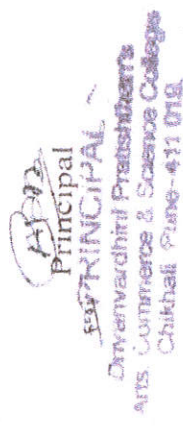 Principal
PRINCIPAL
Dnyanvardhini Pratishthan's
Arts, Commerce & Science College
Chikhali Pune-411 019